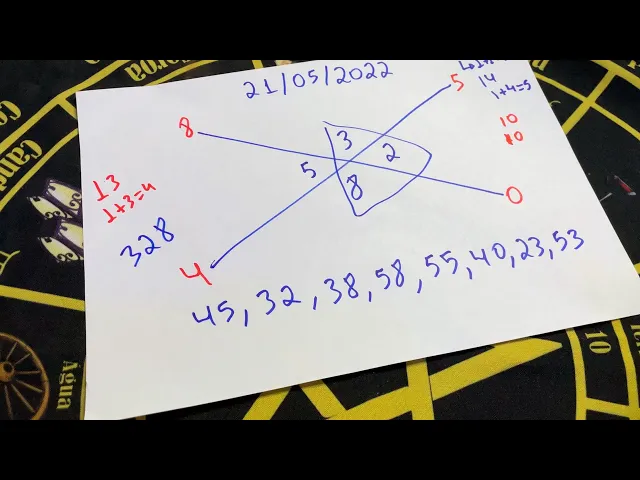 21/05/2022
8
5
14
1+4=5
3
2
5
8
10
10
13
1+3=4
328
4
0
45, 32, 38, 58, 55, 40, 23, 53
Água
10